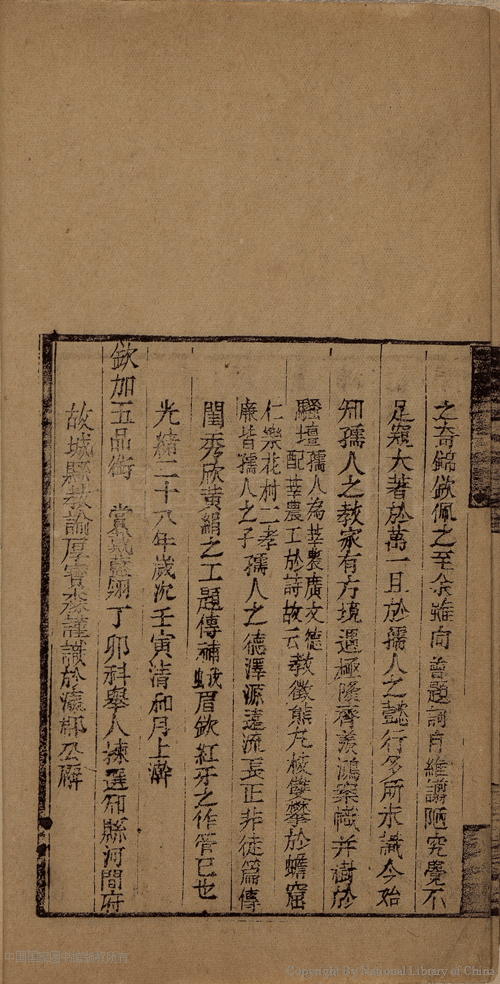 之奇錦欽佩之至余雖向曾題詞自維譾陋究覺不
足窺大著於萬一且於孺人之懿行多所未識今始
知孺人之教家有方境遇極隆齊美鴻案幟并樹於
騷壇孺人為莘農廣文德配莘農工於詩故云教徵熊丸枝雙攀於蟾窟
仁樂花村二孝廉皆孺人之子孺人之德澤源遠流長正非徒篇傳
閨秀欣黃絹之工題傳補蛾眉欽紅牙之作管已也
光緒二十八年歲次壬寅清和月上澣
欽加五品銜 賞戴藍翎丁卯科舉人揀選知縣河間府
故城縣教諭厚賓 謹識於瀛郡公廨
中国国家图书馆
Copyright By National Library of China